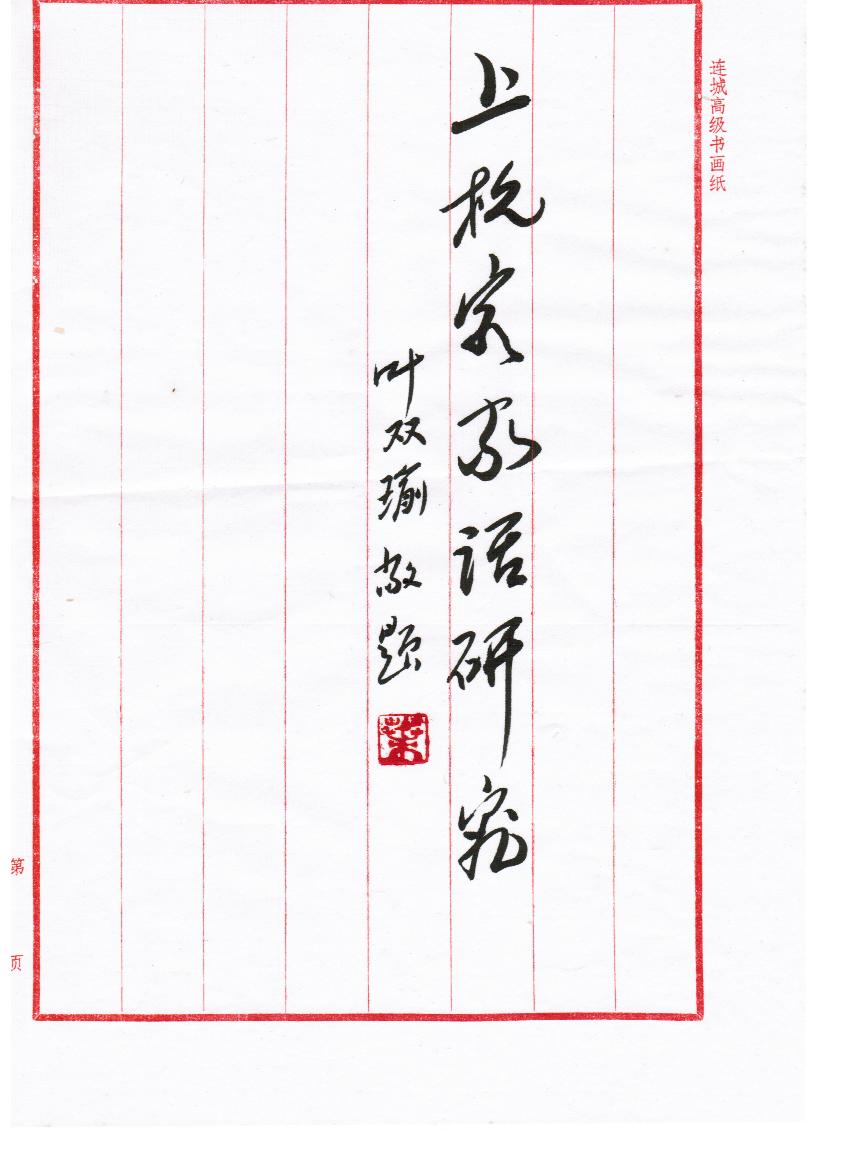 连城高级书画纸
上杭客家话研究
叶双瑜敬题
葉
第 页